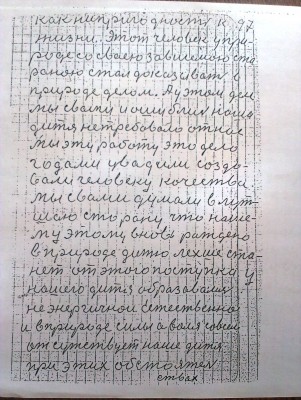 как нипригодность к 97
жизни. Этот человек у при
роде со своею зависимою сто
раною стал доказывать в
природе делом. А у этом деле
мы с вами и ошиблись наша
дитя не требовало от нас
мы эту работу это дело
годами увадили созда
вали человеку качества
мы с вами думали в луч
шую сторану что наше
му этому вновь раждено
в природе дитю лехше ста
нет от этого поступка у
нашего дитя образавалися
не энергичной естественно
и в природе силы а воля совсем
отсутствует наше дитя
при этих обстоятел
ствах